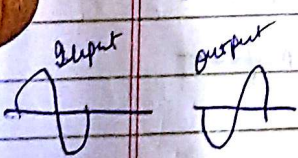 Input
output